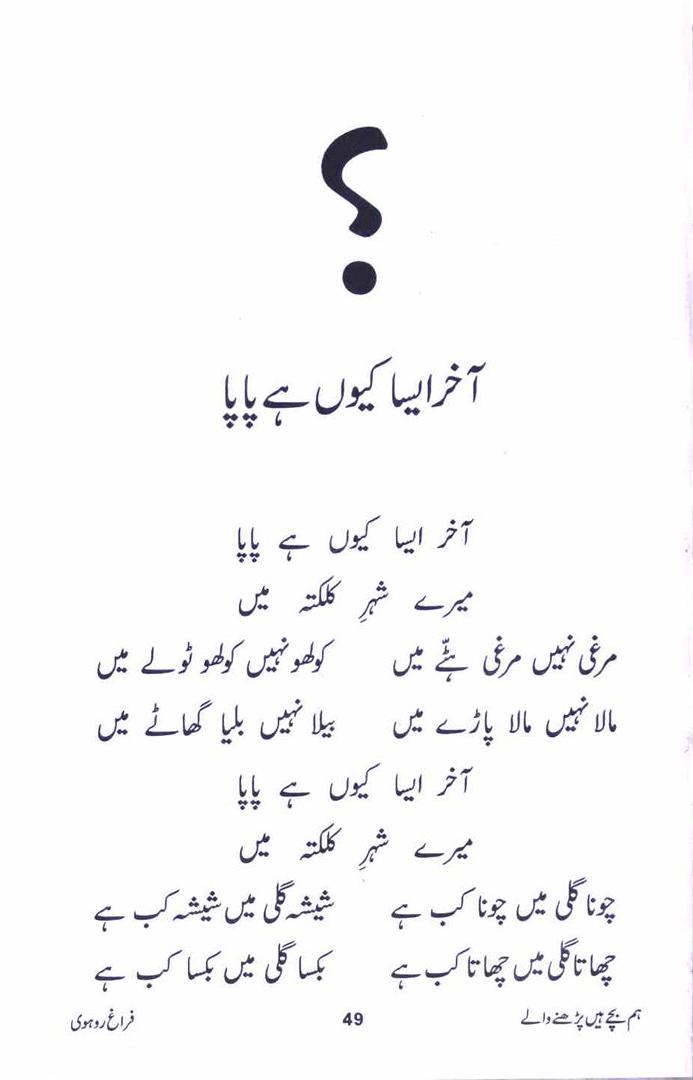 ؟
آخر ایسا کیوں ہے پاپا
آخر ایسا کیوں ہے پاپا
میرے شہرِ کلکتہ میں
مرغی نہیں مرغی ہٹّے میں کولھو نہیں کولھو ٹولے میں
مالا نہیں مالا پاڑے میں بیلا نہیں بلیا گھاٹے میں
آخر ایسا کیوں ہے پاپا
میرے شہرِ کلکتہ میں
چونا گلی میں چونا کب ہے شیشہ گلی میں شیشہ کب ہے
چھاتا گلی میں چھاتا کب ہے بکسا گلی میں بکسا کب ہے
ہم بچے ہیں پڑھنے والے 49 فراغ روہوی